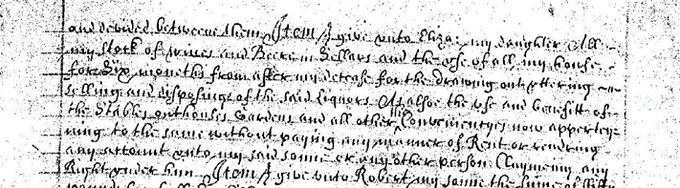 and devided betweene them Item I give unto Eliza: my daughter All
my stock of wines and Beere in Sellars and the use of all my house
for Six months from after my decease for the drawing out uttering
selling and disposing of the said liquors As alsoe the use and benefitt of
the Stables outhouses Gardens and all other the Conveniencyes now apperteyn-
ning to the same without paying any manner of Rent or rendring
any account unto my said sonne or any other person Clayming any
Right under him Item I give unto Robert my sonne the